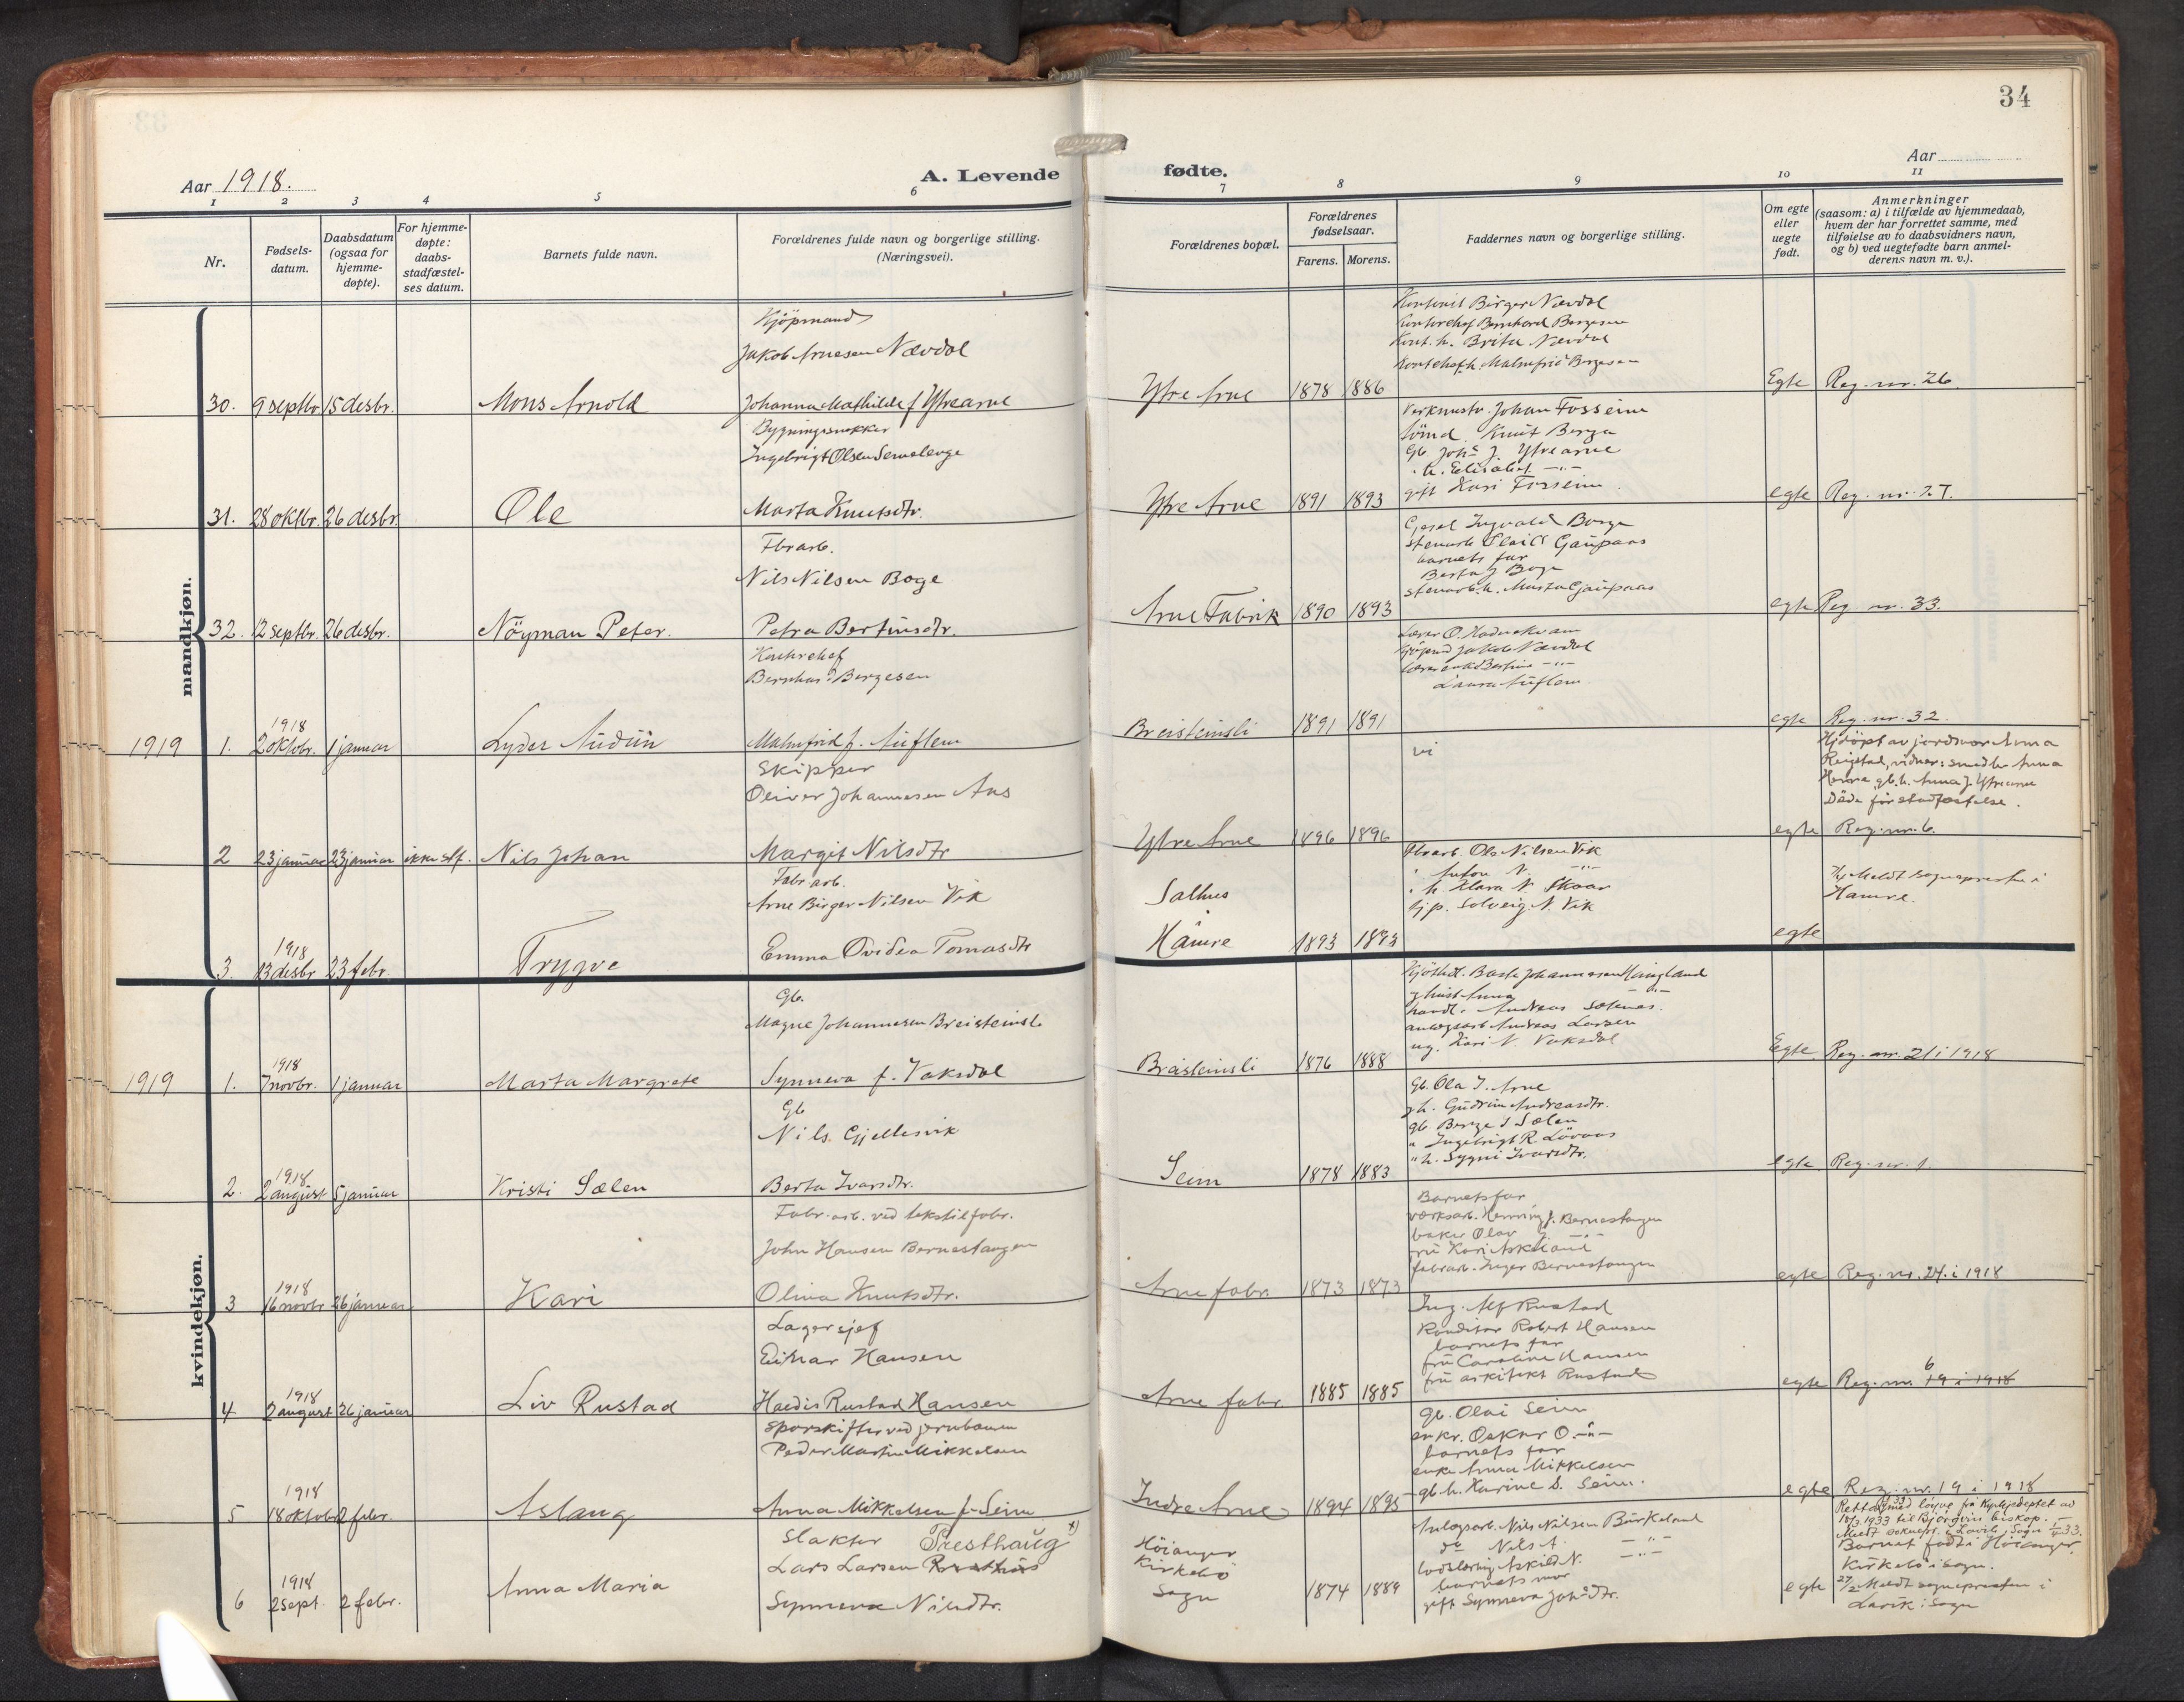 34
Aar 1918.
A. Levende fødte.
Aar
1 2 3 4 5 6 7 8 9 10 11
Nr.
Fødsels-datum.
Daabsdatum (ogsaa for hjemme-døpte).
For hjemme-døpte: daabs-stadfæstel-ses datum.
Barnets fulde navn.
Forældrenes fulde navn og borgerlige stilling. (Næringsvei).
Forældrenes bopæl.
Forældrenes fødselsaar.
Farens. Morens.
Faddernes navn og borgerlige stilling.
Om egte eller uegte født.
Anmerkninger (saasom: a) i tilfælde av hjemmedaab, hvem der har forrettet samme, med tilføielse av to daabsvidners navn, og b) ved uegtefødte barn anmel-derens navn m. v.).
mandkjøn.
Kjöpmand
Jakob Arnesen Nævdal
30. 9 septbr. 15 desbr. Mons Arnold
Johanna Mathilde f. Ytrearne
Ytre Arne 1878 1886
Birger Nævdal
Bernhard Borgesen
Kont. h. Brita Nævdal
Malmfrid Borgesen
Egte Reg. nr. 26.
Bygningssnekker
Ingebrigt Olsen
31. 28 oktbr. 26 desbr. Ole
Marta Knutsdtr.
Ytre Arne 1891 1893
Verkmstr. Johan Fosseim
Knut Berge
Gb. Johs J. Ytrearne
" h. Elisabet -"-
gift Kari Fosseim.
egte Reg. nr. 27.
Fbrarb.
Nils Nilsen Boge
32. 12 septbr. 26 desbr. Nöyman Peter.
Petra Bertinsdtr.
Arne Fabrik 1890 1893
Ingvald Borge
stenarb. Gaupaas
barnets far
Berta J Boge
stenarb. h. Marta Gaupaas
egte Reg nr. 33.
Kontrchef
Bernhard Borgesen
1919 1. 1918 2 oktobr. 1 januar Lyder Audun
Malmfrid f. Auflem
Breisteinsli 1891 1891
Lærer O.
Jakob Nævdal
-"-
Laura Auflem
egte Reg. nr. 32.
Skipper
Oliver Johannesen Aas
2 23 januar 23 januar ikke stf. Nils Johan
Margit Nilsdtr
Ytre Arne 1896 1896
Hjdöpt av jordmor Anna
Reigstad, vidner: Anna
gb.h. Anna J. Ytrearne
Döde för stadfæstelse.
egte Reg. nr. 6.
Fabr. arb.
Arne Birger Nilsen Vik
3. 1918 13 desbr 23 febr. Trygve
Emma Ovidea Tomasdtr
Salhus
Hamre 1893 1893
Fbrarb. Ole Nilsen Vik
" Anton N. -"-
" h. Klara N. Skaar
Solveig N. Vik
egte
Meldt sognepresten i
Hamre.
kvindekjøn.
Gb.
Magne Johannesen Breisteinsl.
1919 1. 1918 7 novbr. 1 januar Marta Margrete
Synneva f. Vaksdal
Breisteinsli 1876 1888
Johannesen Haugland
Anna -"-
handl. Andreas
anlægsarb. Andreas Larsen
ug. Kari N. Vaksdal
Egte Reg. nr. 21 i 1918
Gb
Nils Gjellesvik
2. 1918 2 august 5 januar Kristi Sælen
Berta Ivarsdtr.
Seim 1878 1883
Gb. Ola J. Arne
gb. h. Gudrun Andreasdtr.
gb. Berge J Sælen
" Ingebrigt R. Lövaas
" h. Sygni Ivarsdtr.
egte Reg. nr. 1.
Fabr. arb. ved tekstilfabr.
John Hansen Bernestangen
3 1918 16 novbr 26 januar Kari
Olina Knutsdtr.
Arne fabr. 1873 1873
Barnets far
værksarb. Henning J. Bernestangen
baker Olav J. -"-
fru Kari Askeland
fabrarb. Inger Bernestangen
egte Reg. nr. 24. i 1918
Lagersjef
Einar Hansen
4 1918 2 august 26 januar Liv Rustad
Haldis Rustad Hansen
Arne fabr. 1885 1885
Ing. Alf Rustad
Konditor Robert Hansen
barnets far
fru Caroline Hansen
fru arkitekt Rustad
egte Reg. nr. 6 19 i 1918
Sporskifter ved jernbanen
Peder Martin Mikkelsen
5 1918 18 oktobr 2 febr. Aslaug
Anna Mikkelsen f. Seim
Indre Arne 1894 1895
gb. Olai Seim
enkr. Oskar O. -"-
barnets far
enke Anna Mikkelsen
gb. h. Karine S. Seim.
egte Reg. nr. 19 i 1918
Slakter Presthaug x)
Lars Larsen
6 1918 2 sept. 2 febr. Anna Maria
Synneva Nilsdtr.
Höianger
Kirkebö
Sogn 1874 1889
Anlægsarb. Nils Nilsen Bürkeland
do Nils A. -"-
Askild N. -"-
barnets mor
gift Synneva Johsdtr.
egte
Rettet med löyve fra Kyrkjedeptet av
18/3 1933 til Björgvin biskop.
Meldt soknepr. i Lavik i Sogn 33.
Barnet født i Höianger,
Kirkebö i Sogn.
27/2 Meldt sognepresten i
Lavik i Sogn